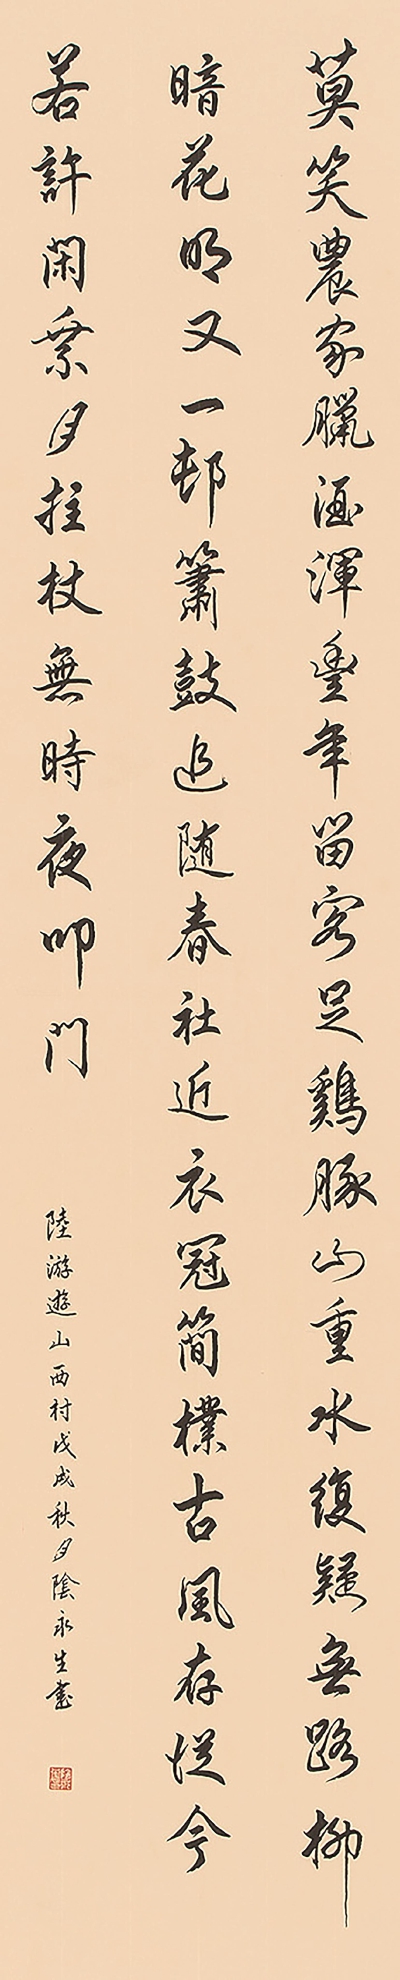 莫笑農家臘酒渾豐年留客足鷄豚山重水復疑無路柳
暗花明又一邨簫鼓追隨春社近衣冠簡樸古風存從今
若許閑乘月拄杖無時夜叩門
陸游遊山西村戊戌秋月陰永生書